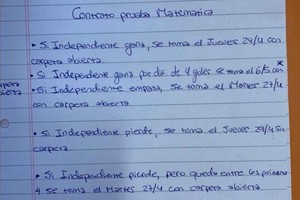 Contrato prueba Matematica
• Si Independiente gana, se toma el Jueves 29/4 con
carpeta abierta.
• Si Independiente gana por dif. de 4 goles se toma el 6/5 con
• Si Independiente empata, se toma el Martes 27/4
con carpeta abierta
• Si Independiente pierde, se toma el Jueves 29/4 sin
carpeta.
• Si Independiente pierde, pero queda entre los primeros
4 se toma el Martes 27/4 con carpeta abierta.